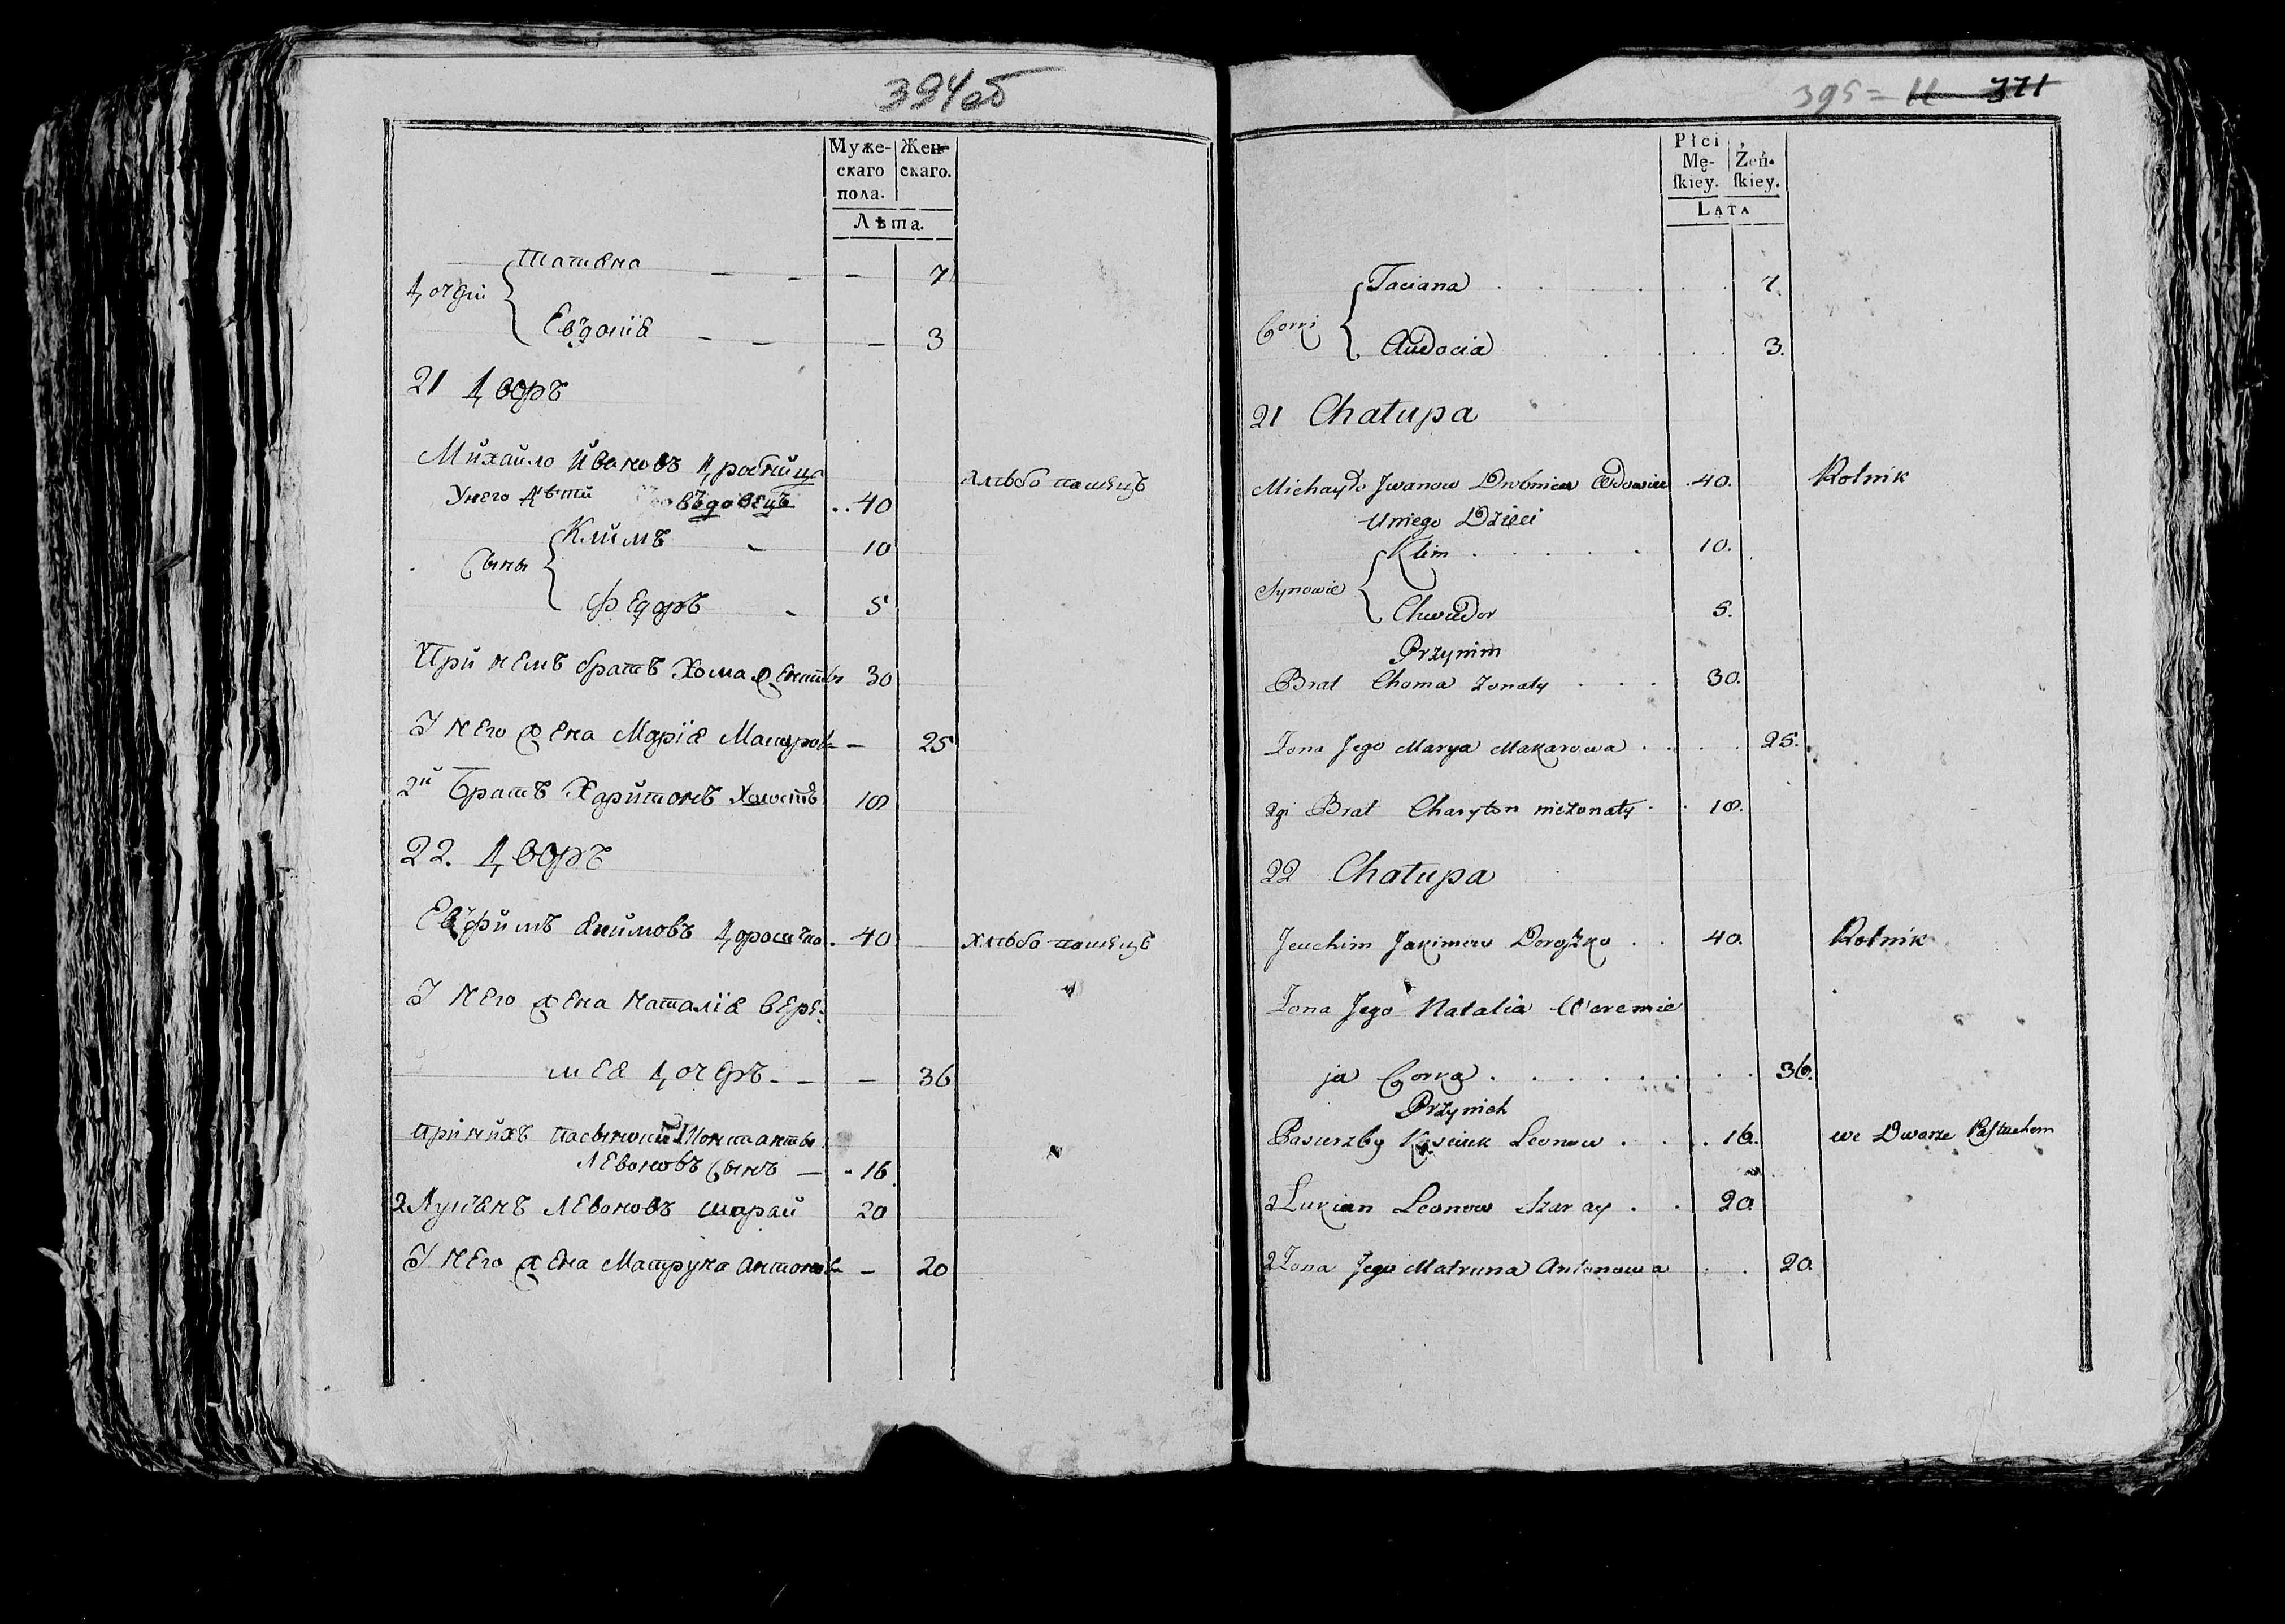 394об
Муже- Жен-
скаго скаго.
пола.
Лѣта.
Татяна — — — 7
Дочери
Евъдокия — — — 3
21 Дворъ
Михайло Ивановъ Дробница хлѣбопашецъ
У него дѣти въдовецъ 40
Климъ - 10
Сыны
Федоръ - 5
При немъ братъ Хома женаты 30
У него жена Мария Макарова — 25
2й Братъ Харитонъ Холостъ 18
22. Дворъ
Евъфимъ Якимовъ Дорошко 40 хлѣбопашецъ
У него жена Наталия Вере-
мея дочеръ — — 36
При нихъ пасынокъ Константы
Левоновъ сынъ — 16
2 Лукянъ Левоновъ Шарай 20
У него жена Матруна Антонова — 20
395 = 11 371
Płci
Mę- Żeń-
skiey. skiey.
LATA
Taciana 7.
Corki
Audocia 3.
21 Chatupa
Michayło Jwanow Drobnica Wdowiec 40. Rolnik
U niego Dzieci
Klim 10.
Synowie
Chwiedor 5.
Przynim
Brat Choma żonaty 30.
Żona Jego Marya Makarowa 25.
2gi Brat Charyton nieżonaty 18.
22 Chatupa
Jeuchim Jakimow Doroszko 40. Rolnik
Żona Jego Natalia Weremie
ja Corka 36.
Przynich
Pasierzby Kściuk Leonow 16. we Dworze Pastuchem
2 Lukian Leonow Szaray 20
2 Żona Jego Matruna Antonowa 20.